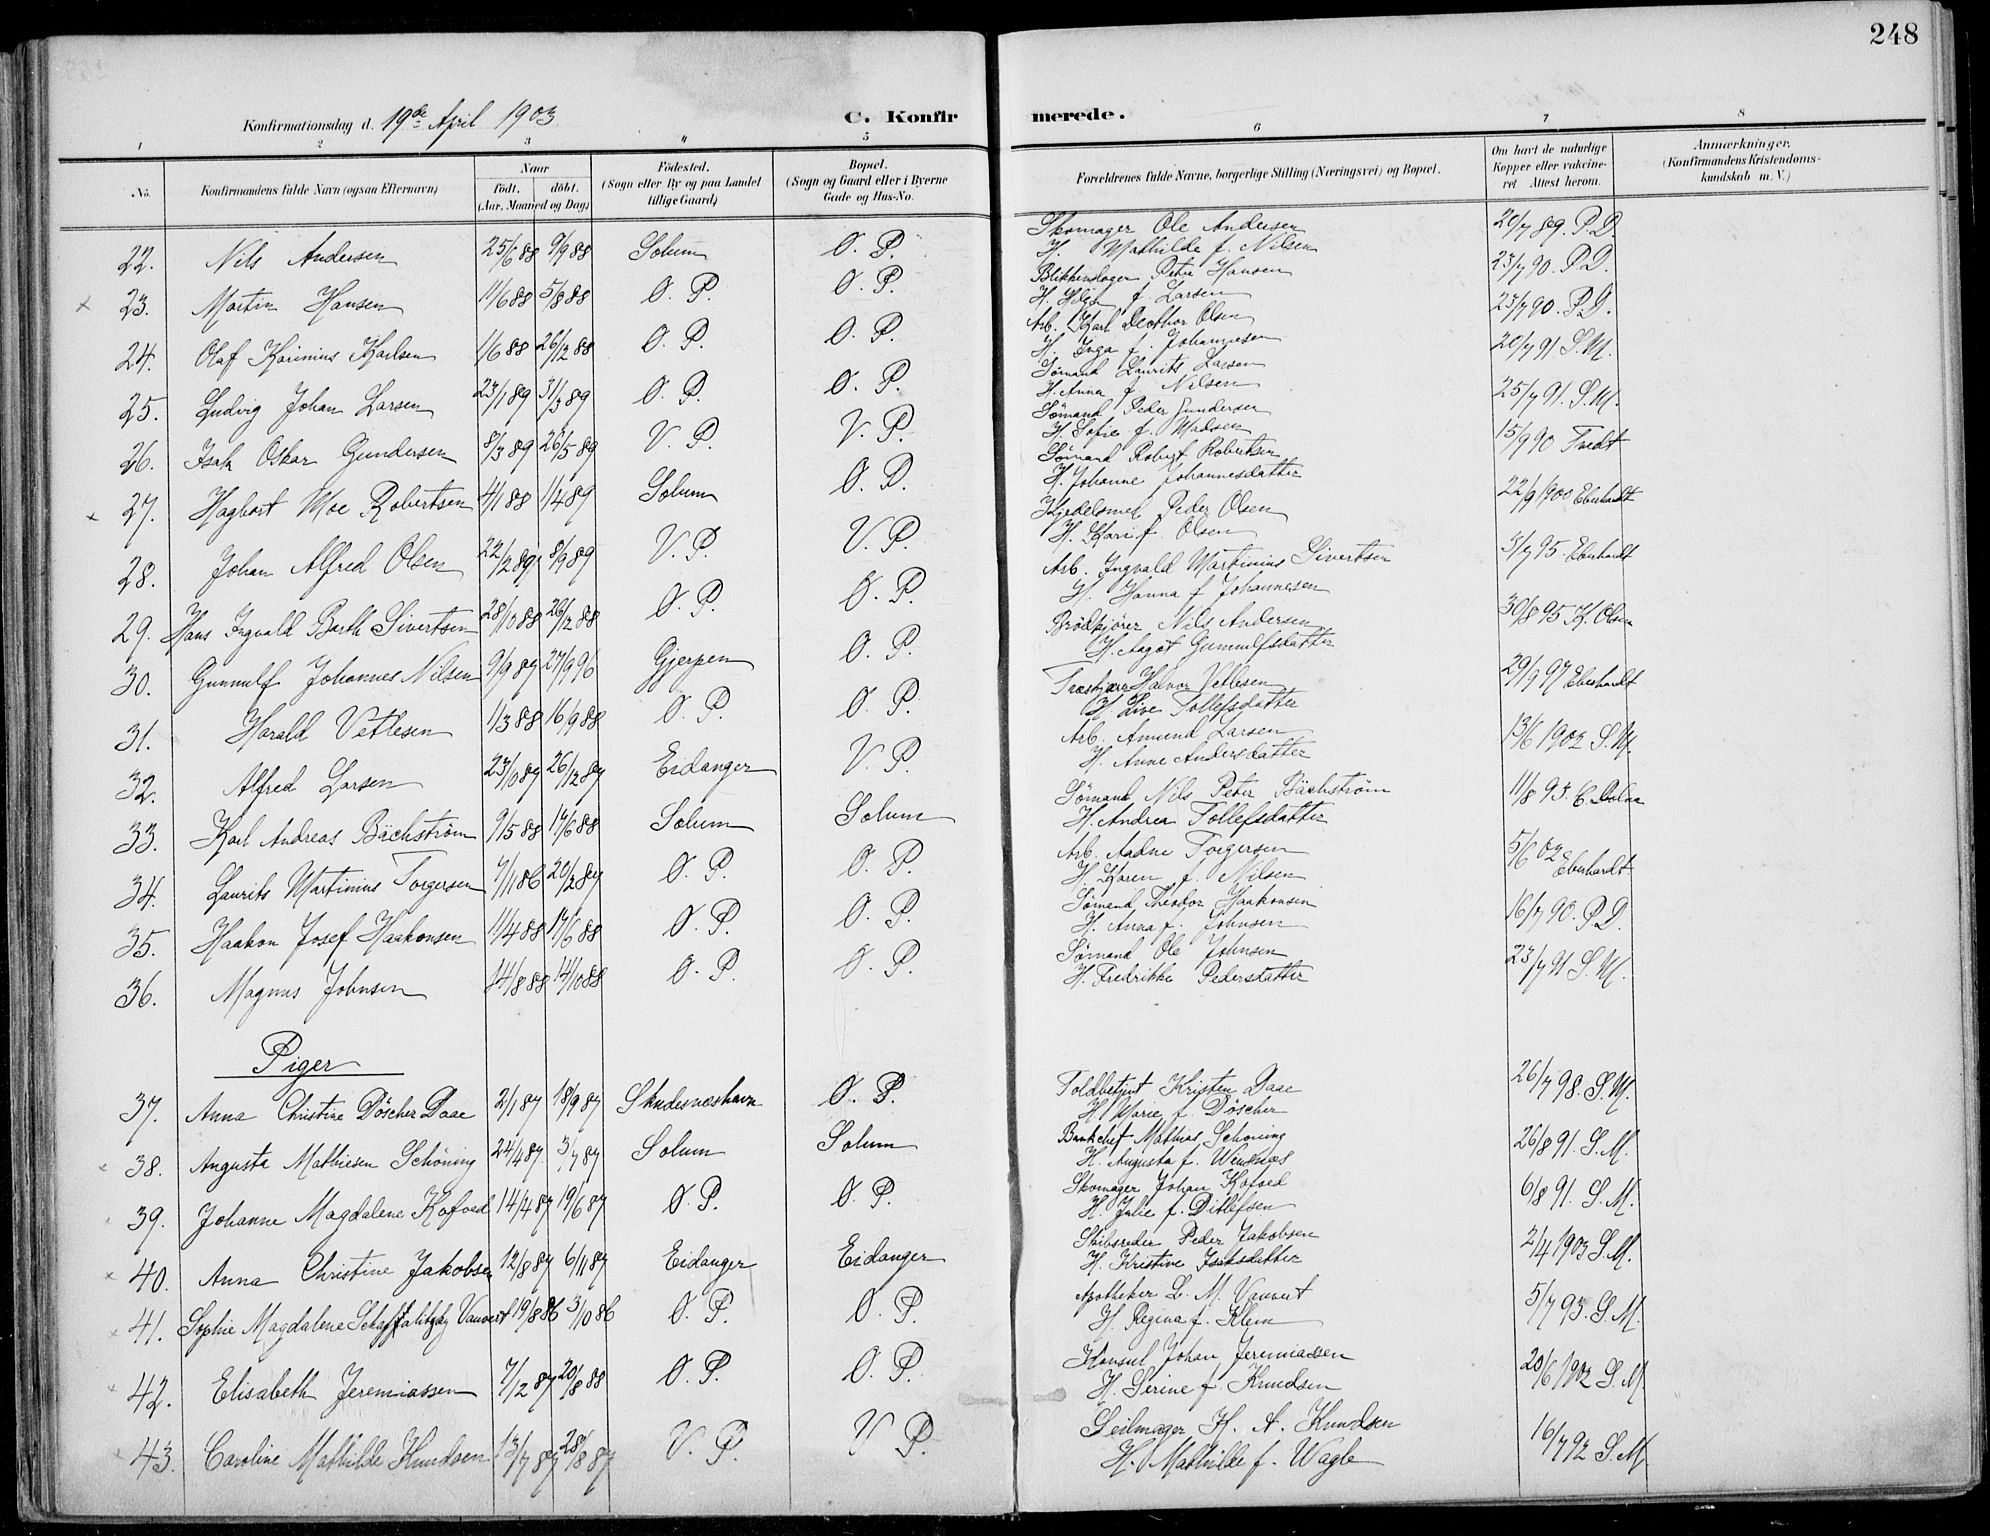 248
Konfirmationsdag d. 19de April 1903.
C. Konfirmerede.
1 2 3 4 5 6 7 8
No.
Konfirmandens fulde Navn (ogsaa Efternavn)
Naar
født. døbt.
(Aar, Maaned og Dag)
Fødested.
(Sogn eller By og paa Landet
tillige Gaard)
Bopæl.
(Sogn og Gaard eller i Byerne
Gade og Hus-No.
Forældrenes fulde Navne, borgerlige Stilling (Næringsvei) og Bopæl.
Om havt de naturlige
Kopper eller vakcine-
ret Attest herom.
Anmærkninger.
(Konfirmandens Kristendoms-
kundskab m. V.)
22. Nils Andersen 25/6 88 9/9 88 Solum Ø. P. Skomager Ole Andersen 20/7 89. P. D.
H. Mathilde f. Nilsen
23. Martin Hansen 11/6 88 5/8 88 Ø. P. Ø. P. Blikkenslager Peter Hansen 23/7 90. P. D.
H. Helga f. Larsen
24. Olaf Karinius Karlsen 1/6 88 26/12 88 Ø. P. Ø. P. Arb. Karl Olsen 25/7 90. P. D.
H. Inga f. Johannesen
25. Ludvig Johan Larsen 23/1 89 31/3 89 Ø. P. Ø. P. Sømand Laurits Larsen 20/7 91 S. M.
H. Anna f. Nilsen
26. Isak Oskar Gundersen 8/3 89 26/5 89 V. P. V. P. Sømand Peder Gundersen 25/7 91. S. M.
H. Sofie f. Madsen
27. Hagbart Moe Robertsen 4/1 88 1/4 89 Solum Ø. P. Sømand Robert Robertsen 15/9 90 Tvedt
H. Johanne Johannesdatter
28. Johan Alfred Olsen 22/2 89 8/9 89 V. P. V. P. Kjedelsmed Peder Olsen 22/9 1900 Eberhardt
H. Kari f. Olsen
29. Hans Ingvald Barth Sivertsen 28/10 88 26/12 88 Ø. P. Ø. P. Arb. Ingvald Martinius Sivertsen 3/7 95. Eberhardt
H. Hanna f. Johannesen
30. Gunnulf Johannes Nilsen 9/9 87 27/9 96 Gjerpen Ø. P. Brødkjører Nils Andersen 30/8 95 K. Olsen
H. Aagot Gunnulfsdatter
31. Harald Vetlesen 1/3 88 16/9 88 Ø. P. Ø. P. Halvor Vetlesen 29/9 97 Eberhardt
H. Live Tollefsdatter
32. Alfred Larsen 23/10 87 26/12 87 Eidanger V. P. Arb. Amund Larsen 13/6 1902 S. M.
H. Anne Andersdatter
33. Karl Andreas Bächstrøm 9/5 88 17/6 88 Solum Solum Sømand Nils Peter Bächstrøm 11/8 95.
H. Andrea Tollefsdatter
34. Laurits Martinius Torgersen 7/11 86 20/2 87 Ø. P. Ø. P. Arb. Aadne Torgersen 5/6 02 Eberhardt
H. Karen f. Nilsen
35. Haakon Josef Haakonsen 11/4 88 17/6 88 Ø. P. Ø. P. Sømand Theodor Haakonsen 16/7 90. P. D.
H. Anna f. Johnsen
36. Magnus Johnsen 14/8 88 14/10 88 Ø. P. Ø. P. Sømand Ole Johnsen 23/7 91 S. M.
H. Fredrikke Pedersdatter
Piger
37. Anna Christine Döscher Daae 2/1 87 18/9 87 Skudesneshavn Ø. P. Toldbetjent Kristen Daae 26/7 98. S. M.
H. Marie f. Döscher
38. Augusta Mathiesen Schöning 24/4 87. 3/7 87 Solum Solum Bankchef Mathias Schöning 26/8 91. S. M.
H. Augusta f.
39. Johanne Magdalene Kofoed 14/4 87 19/6 87 Ø. P. Ø. P. Skomager Johan Kofoed 6/8 91. S. M.
H. Julie f. Ditlefsen
40. Anna Christine Jakobsen 12/8 87 6/11 87 Eidanger Eidanger Skibsreder Peder Jakobsen 2/4 1903 S. M.
H. Kristine Isaksdatter
41. Sophie Magdalene Vauvert 19/8 86 3/10 86 Ø. P. Ø. P. Apotheker L. M. Vauvert 5/7 93. S. M.
H. Regina f. Klem
42. Elisabeth Jeremiassen 7/12 87 20/8 88 Ø. P. Ø. P. Konsul Johan Jeremiassen 20/6 1902 S. M.
H. Serine f. Knudsen
43. Caroline Mathilde Knudsen 13/7 87 28/8 87 V. P. V. P. Seilmager H. A. Knudsen 16/7 92 S. M.
H. Mathilde f. Wagle